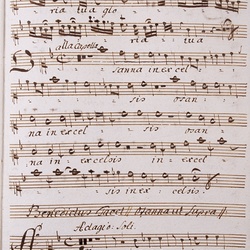 ria tua glo
ria tua
alla Capella
Osanna in excel
sis osan
na in excel
na in excelsis in ex
sis in ex celsis
Benedictus Tacet // Osanna ut Supra //
Adagio Soli